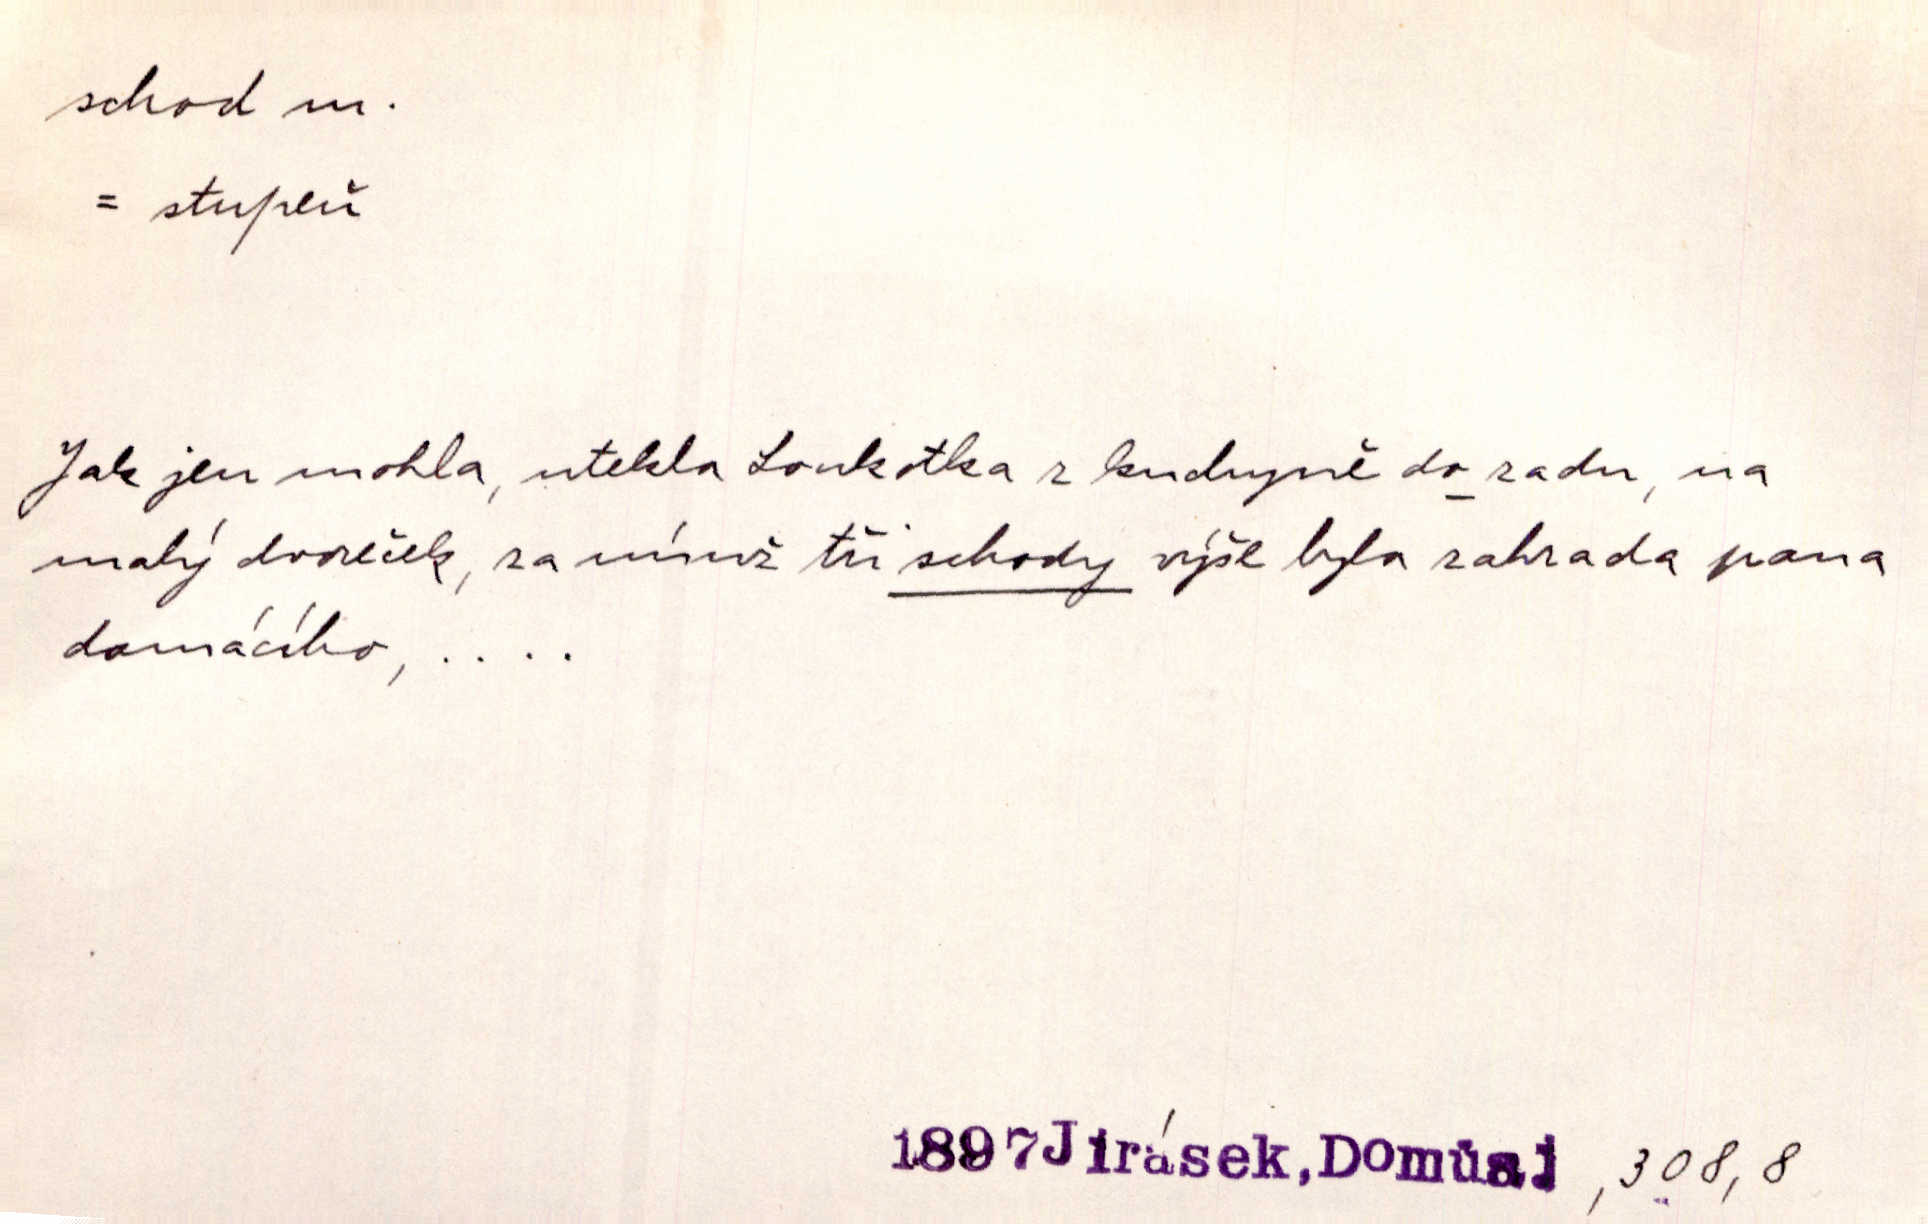 schod m.
= stupeň
Jak jen mohla, utekla Loukotka z kuchyně do zadu, na
malý dvoreček, za nímž tři schody výše byla zahrada pana
domácího, . . . .
1897 Jirásek, Domů, 308, 8